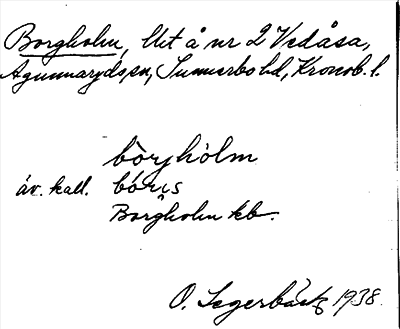 Borgholm, Ut å nr 2 Vedåsa,
Agunnaryds sn, Sunnerbo hd, Kronob. l.
bòrjhòlm
äv. kall. bóris
Borgholm kb.
O. Segerbäck 1938.